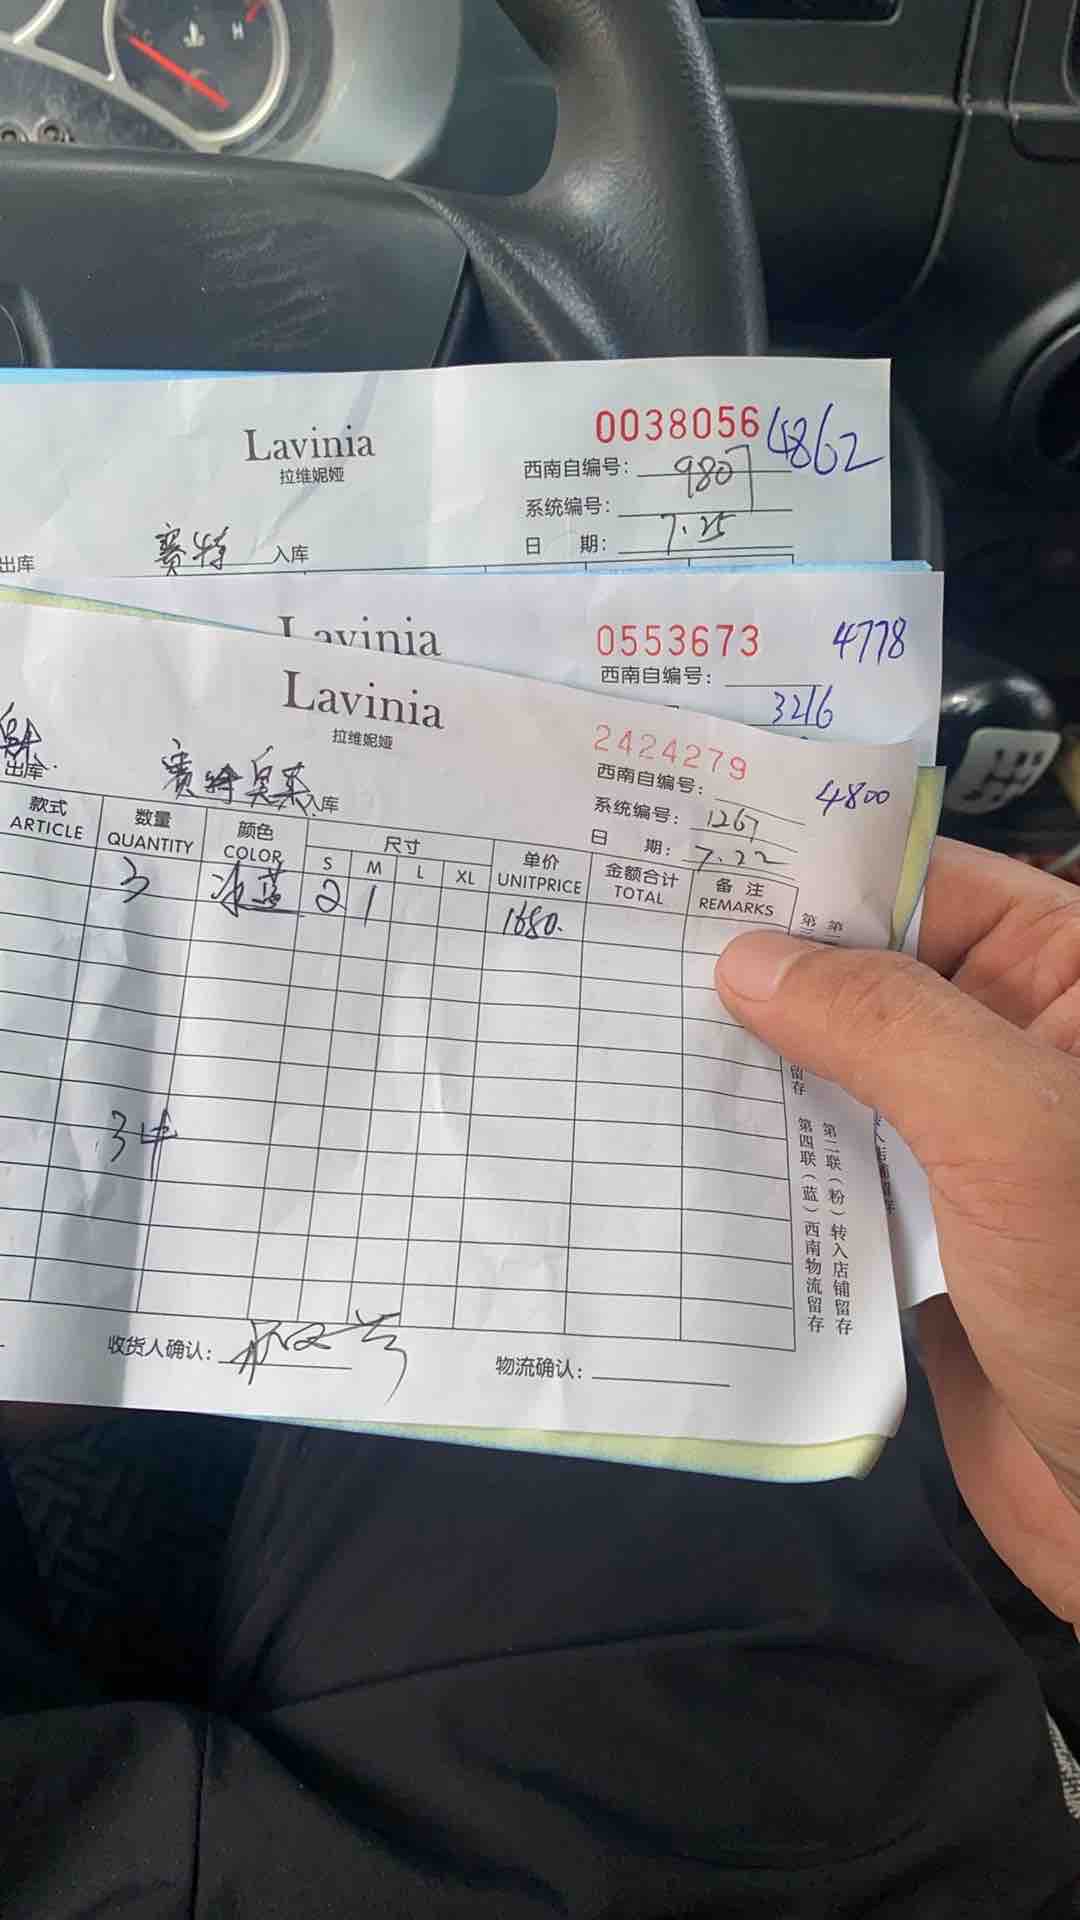 C H
Lavinia
拉维妮娅
0038056 4862
西南自编号: 9807
系统编号:
日 期: 7.25
出库 赛特 入库
Lavinia
0553673 4778
西南自编号:
3216
Lavinia
拉维妮娅
2424279 4800
西南自编号:
系统编号: 1267
日 期: 7.22
出库 赛特奥莱 入库
款式 数量 颜色 尺寸 单价 金额合计 备 注
ARTICLE QUANTITY COLOR S M L XL UNITPRICE TOTAL REMARKS
3 冰蓝 2 1 1680.
3件
收货人确认: 物流确认:
留存
第二联(粉)转入店铺留存
第四联(蓝)西南物流留存